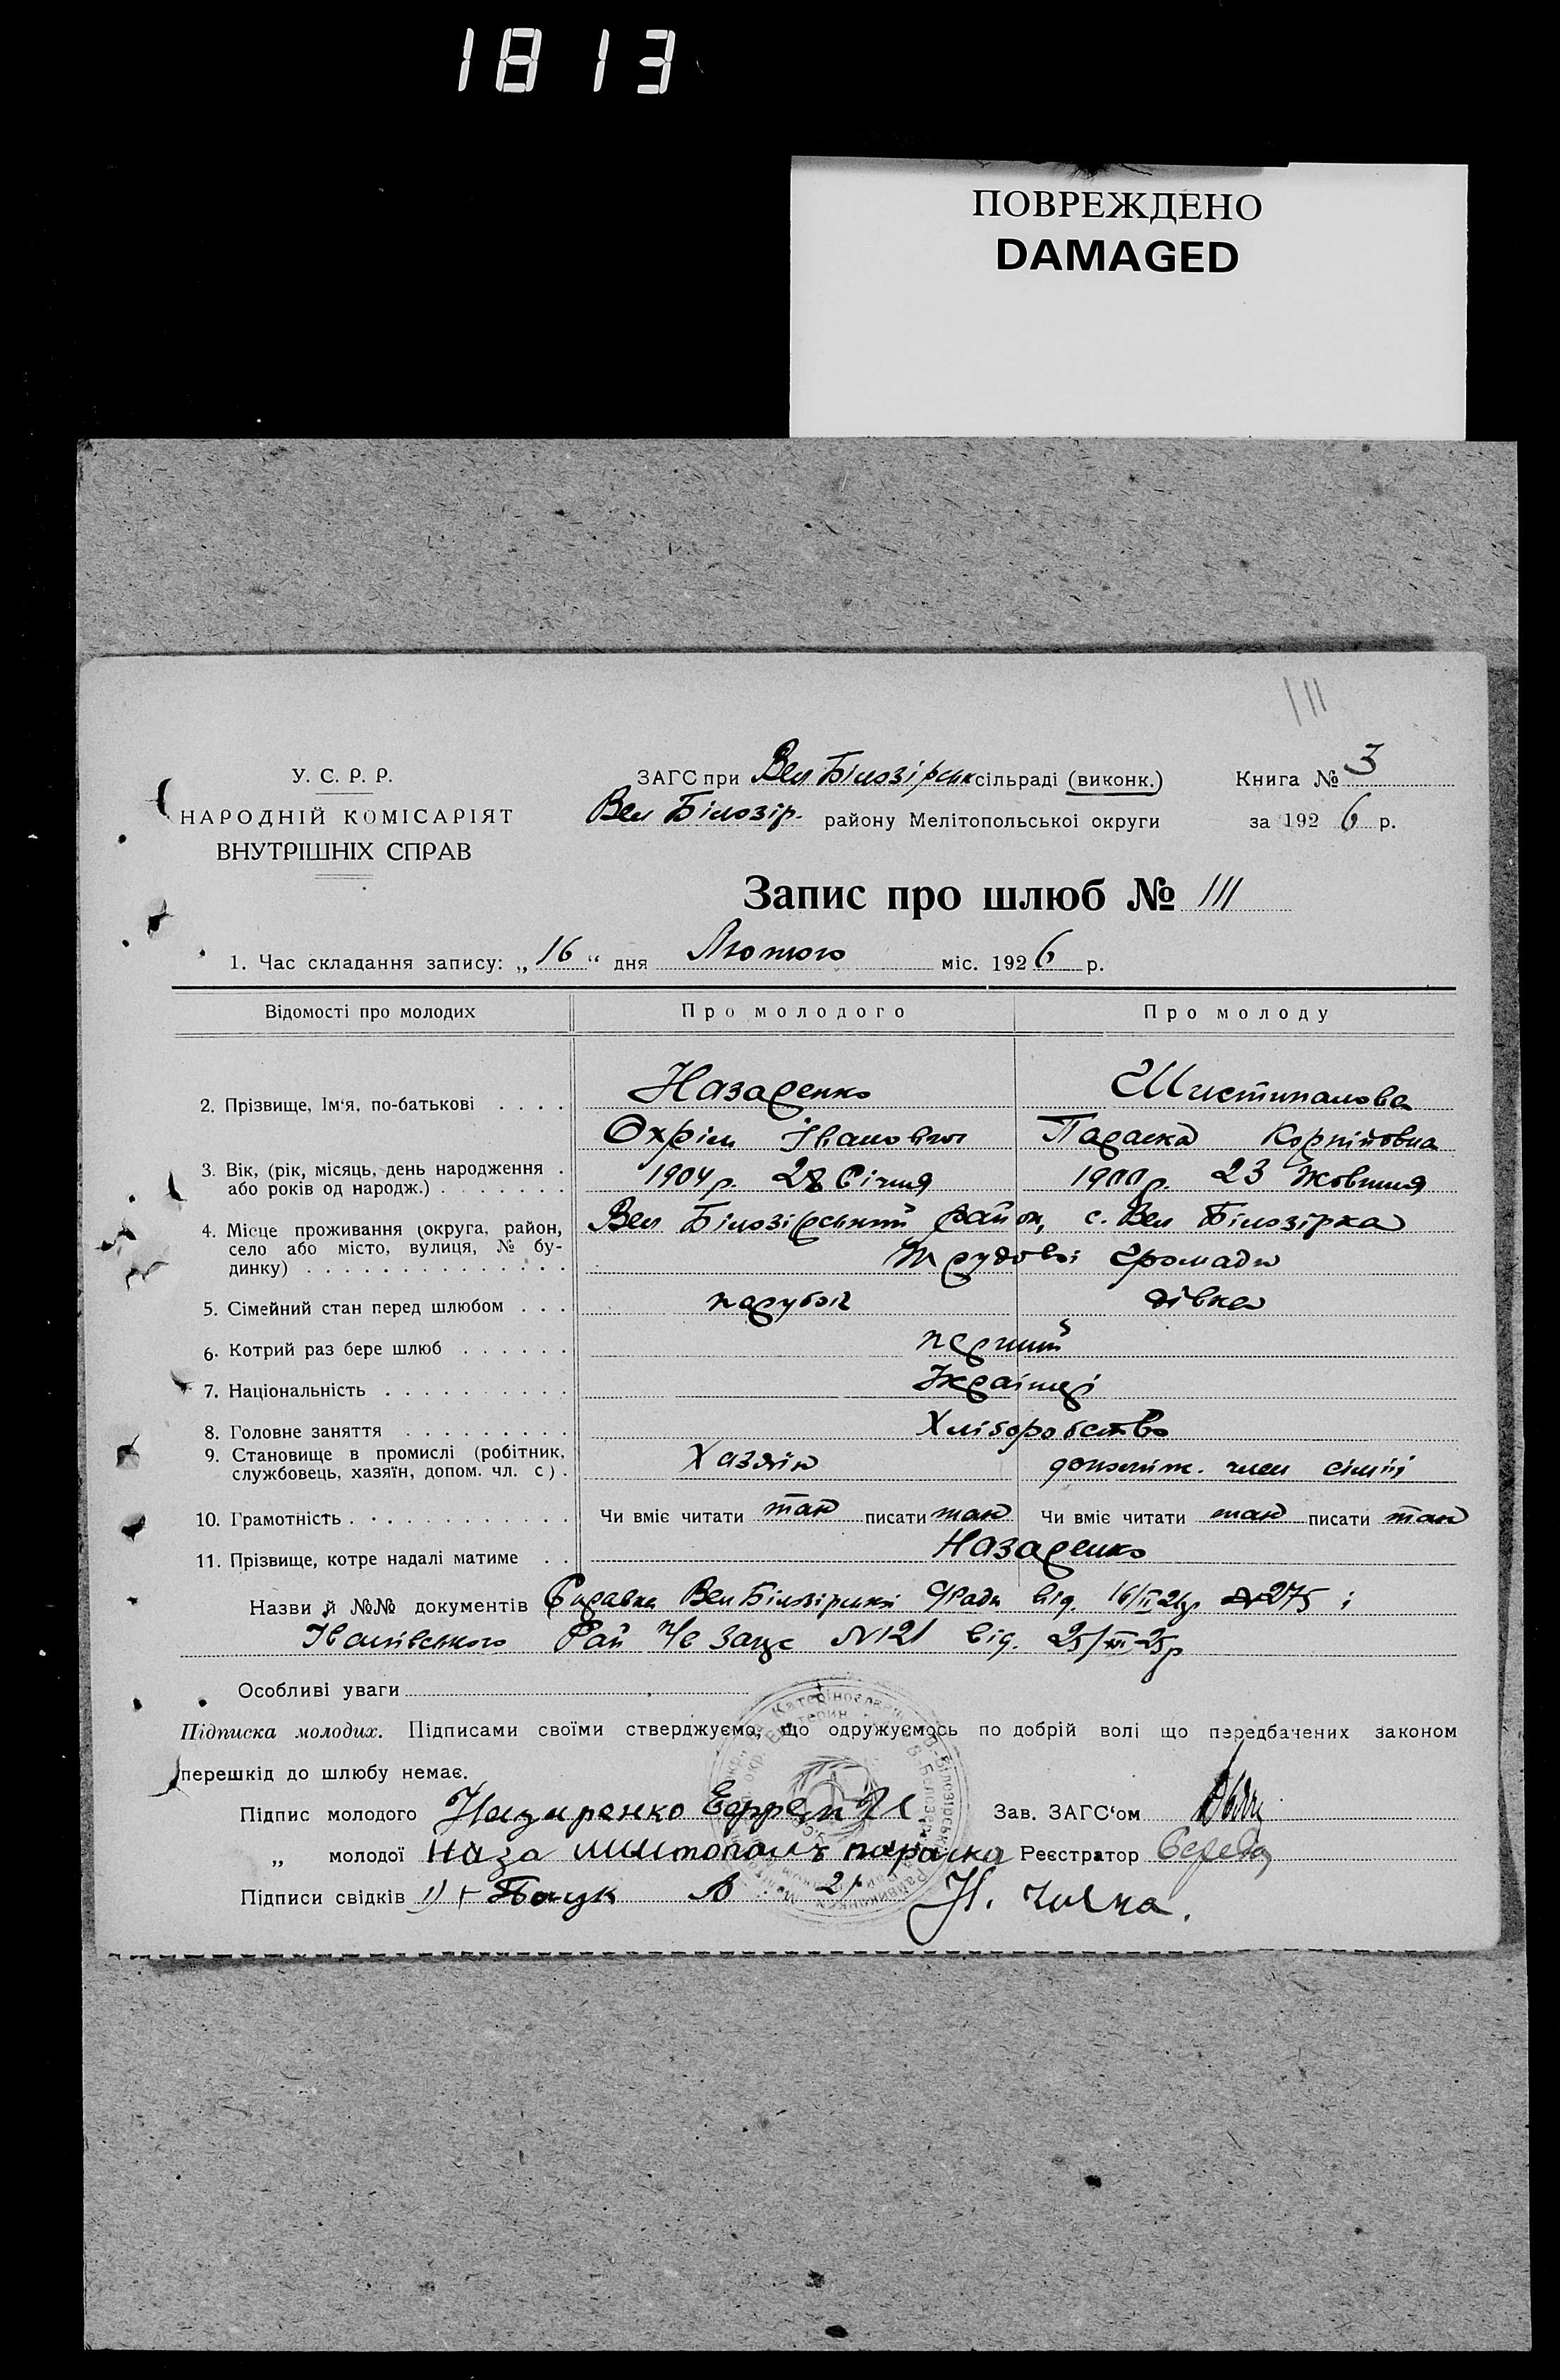 1813
ПОВРЕЖДЕНО
DAMAGED
111
У. С. Р. Р.
НАРОДНІЙ КОМІСАРІЯТ
ВНУТРІШНІХ СПРАВ
ЗАГС при Вел Білозірськ сільраді (виконк.)
Вел Білозір. району Мелітопольської округи
Книга № 3
за 1926 р.
Запис про шлюб № 111
1. Час складання запису: „16“ дня Лютого міс. 1926 р.
Відомості про молодих Про молодого Про молоду
2. Прізвище, Ім‘я, по-батькові . . . . Назаренко
Охрім Іванович Параска
3. Вік, (рік, місяць, день народження . або років од народж.) . . . . . . . 1904 р. 28 Січня 1900 р. 23 Жовтня
4. Місце проживання (округа, район, село або місто, вулиця, № будинку) . . . . . . . . . . . . . . Вел Білозірський район, с. Вел Білозірка
Трудової громади
5. Сімейний стан перед шлюбом . . . парубок дівка
6. Котрий раз бере шлюб . . . . . . перший
7. Національність . . . . . . . . . . Українці
8. Головне заняття . . . . . . . . . Хліборобство
9. Становище в промислі (робітник, службовець, хазяїн, допом. чл. с) . Хазяїн допоміж. член сімії
10. Грамотність . . . . . . . . . . . . Чи вміє читати так писати так Чи вміє читати так писати так
11. Прізвище, котре надалі матиме . . Назаренко
Назви й №№ документів Справка Вел Білозірської С/Ради від. 16/II 26р №275 і
Іванівського Рай Загс №121 від. 25р
Особливі уваги
Підписка молодих. Підписами своїми стверджуємо, що одружуємось по добрій волі що передбачених законом
перешкід до шлюбу немає.
Підпис молодого Назаренко Ефрем И Зав. ЗАГС‘ом
„ молодої Наза Реєстратор Середа
Підписи свідків 1) + Пацук 2)